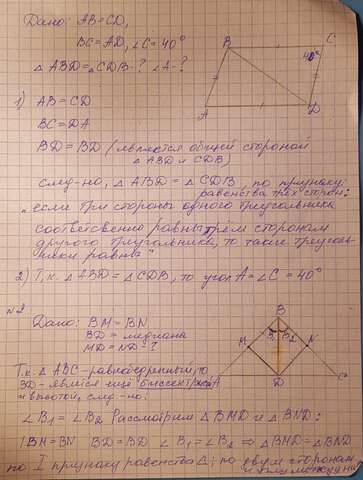 Дано: AB=CD,
BC=AD, ∠C=40°
△ABD=△CDB-? ∠A-?
B
C
40°
A
D
1) AB=CD
BC=DA
BD=BD (является общей стороной
△ABD и CDB)
след-но, △ABD=△CDB, по признаку
равенства трёх сторон:
"если три стороны одного треугольника
соответсвенно равны трём сторонам
другого треугольника, то такие треуголь-
ники равны"
2) Т.к. △ABD=△CDB, то угол A=∠C=40°
№2
Дано: BM=BN
BD=медиана
MD=ND-?
B
B₁ B₂
M
N
A
D
C
Т.к. △ABC-равнобедренный, то
BD-явл-ся ещё биссектрисой
и высотой, след-но:
∠B₁=∠B₂ Рассмотрим △BMD и △BND:
BM=BN BD=BD ∠B₁=∠B₂ ⇒ △BMD=△BND
по I признаку равенства △; по двум сторонам
и углу между ними